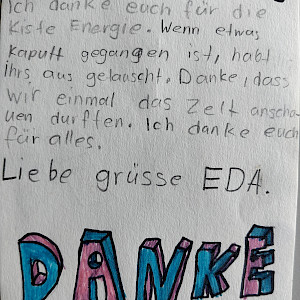 Ich danke euch für die
Kiste Energie. Wenn etwas
kaputt gegangen ist, habt
ihrs aus gelauscht. Danke, dass
wir einmal das Zelt anscha-
uen durften. Ich danke euch
für alles.
Liebe grüsse EDA.
DANKE